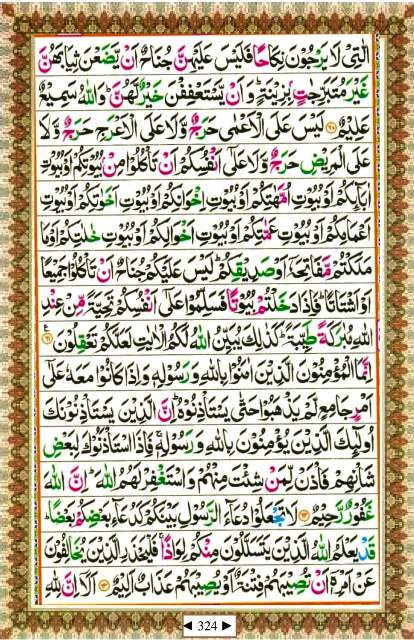 الّٰتِیْ لَا یَرْجُوْنَ نِكَاحًا فَلَیْسَ عَلَیْهِنَّ جُنَاحٌ اَنْ یَّضَعْنَ ثِیَابَهُنَّ
غَیْرَ مُتَبَرِّجٰتٍۭ بِزِیْنَةٍؕ وَ اَنْ یَّسْتَعْفِفْنَ خَیْرٌ لَّهُنَّؕ وَ اللّٰهُ سَمِیْعٌ
عَلِیْمٌ ۝۶۰ لَیْسَ عَلَی الْاَعْمٰی حَرَجٌ وَّ لَا عَلَی الْاَعْرَجِ حَرَجٌ وَّ لَا
عَلَی الْمَرِیْضِ حَرَجٌ وَّ لَا عَلٰۤی اَنْفُسِكُمْ اَنْ تَاْكُلُوْا مِنْۢ بُیُوْتِكُمْ اَوْ بُیُوْتِ
اٰبَآىِٕكُمْ اَوْ بُیُوْتِ اُمَّهٰتِكُمْ اَوْ بُیُوْتِ اِخْوَانِكُمْ اَوْ بُیُوْتِ اَخَوٰتِكُمْ اَوْ بُیُوْتِ
اَعْمَامِكُمْ اَوْ بُیُوْتِ عَمّٰتِكُمْ اَوْ بُیُوْتِ اَخْوَالِكُمْ اَوْ بُیُوْتِ خٰلٰتِكُمْ اَوْ مَا
مَلَكْتُمْ مَّفَاتِحَهٗۤ اَوْ صَدِیْقِكُمْؕ لَیْسَ عَلَیْكُمْ جُنَاحٌ اَنْ تَاْكُلُوْا جَمِیْعًا
اَوْ اَشْتَاتًاؕ فَاِذَا دَخَلْتُمْ بُیُوْتًا فَسَلِّمُوْا عَلٰۤی اَنْفُسِكُمْ تَحِیَّةً مِّنْ عِنْدِ
اللّٰهِ مُبٰرَكَةً طَیِّبَةًؕ كَذٰلِكَ یُبَیِّنُ اللّٰهُ لَكُمُ الْاٰیٰتِ لَعَلَّكُمْ تَعْقِلُوْنَ ۝۶۱
اِنَّمَا الْمُؤْمِنُوْنَ الَّذِیْنَ اٰمَنُوْا بِاللّٰهِ وَ رَسُوْلِهٖ وَ اِذَا كَانُوْا مَعَهٗ عَلٰۤی
اَمْرٍ جَامِعٍ لَّمْ یَذْهَبُوْا حَتّٰی یَسْتَاْذِنُوْهُؕ اِنَّ الَّذِیْنَ یَسْتَاْذِنُوْنَكَ
اُولٰٓىِٕكَ الَّذِیْنَ یُؤْمِنُوْنَ بِاللّٰهِ وَ رَسُوْلِهٖۚ فَاِذَا اسْتَاْذَنُوْكَ لِبَعْضِ
شَاْنِهِمْ فَاْذَنْ لِّمَنْ شِئْتَ مِنْهُمْ وَ اسْتَغْفِرْ لَهُمُ اللّٰهَؕ اِنَّ اللّٰهَ
غَفُوْرٌ رَّحِیْمٌ ۝۶۲ لَا تَجْعَلُوْا دُعَآءَ الرَّسُوْلِ بَیْنَكُمْ كَدُعَآءِ بَعْضِكُمْ بَعْضًاؕ
قَدْ یَعْلَمُ اللّٰهُ الَّذِیْنَ یَتَسَلَّلُوْنَ مِنْكُمْ لِوَاذًاۚ فَلْیَحْذَرِ الَّذِیْنَ یُخَالِفُوْنَ
عَنْ اَمْرِهٖۤ اَنْ تُصِیْبَهُمْ فِتْنَةٌ اَوْ یُصِیْبَهُمْ عَذَابٌ اَلِیْمٌ ۝۶۳ اَلَاۤ اِنَّ لِلّٰهِ
324